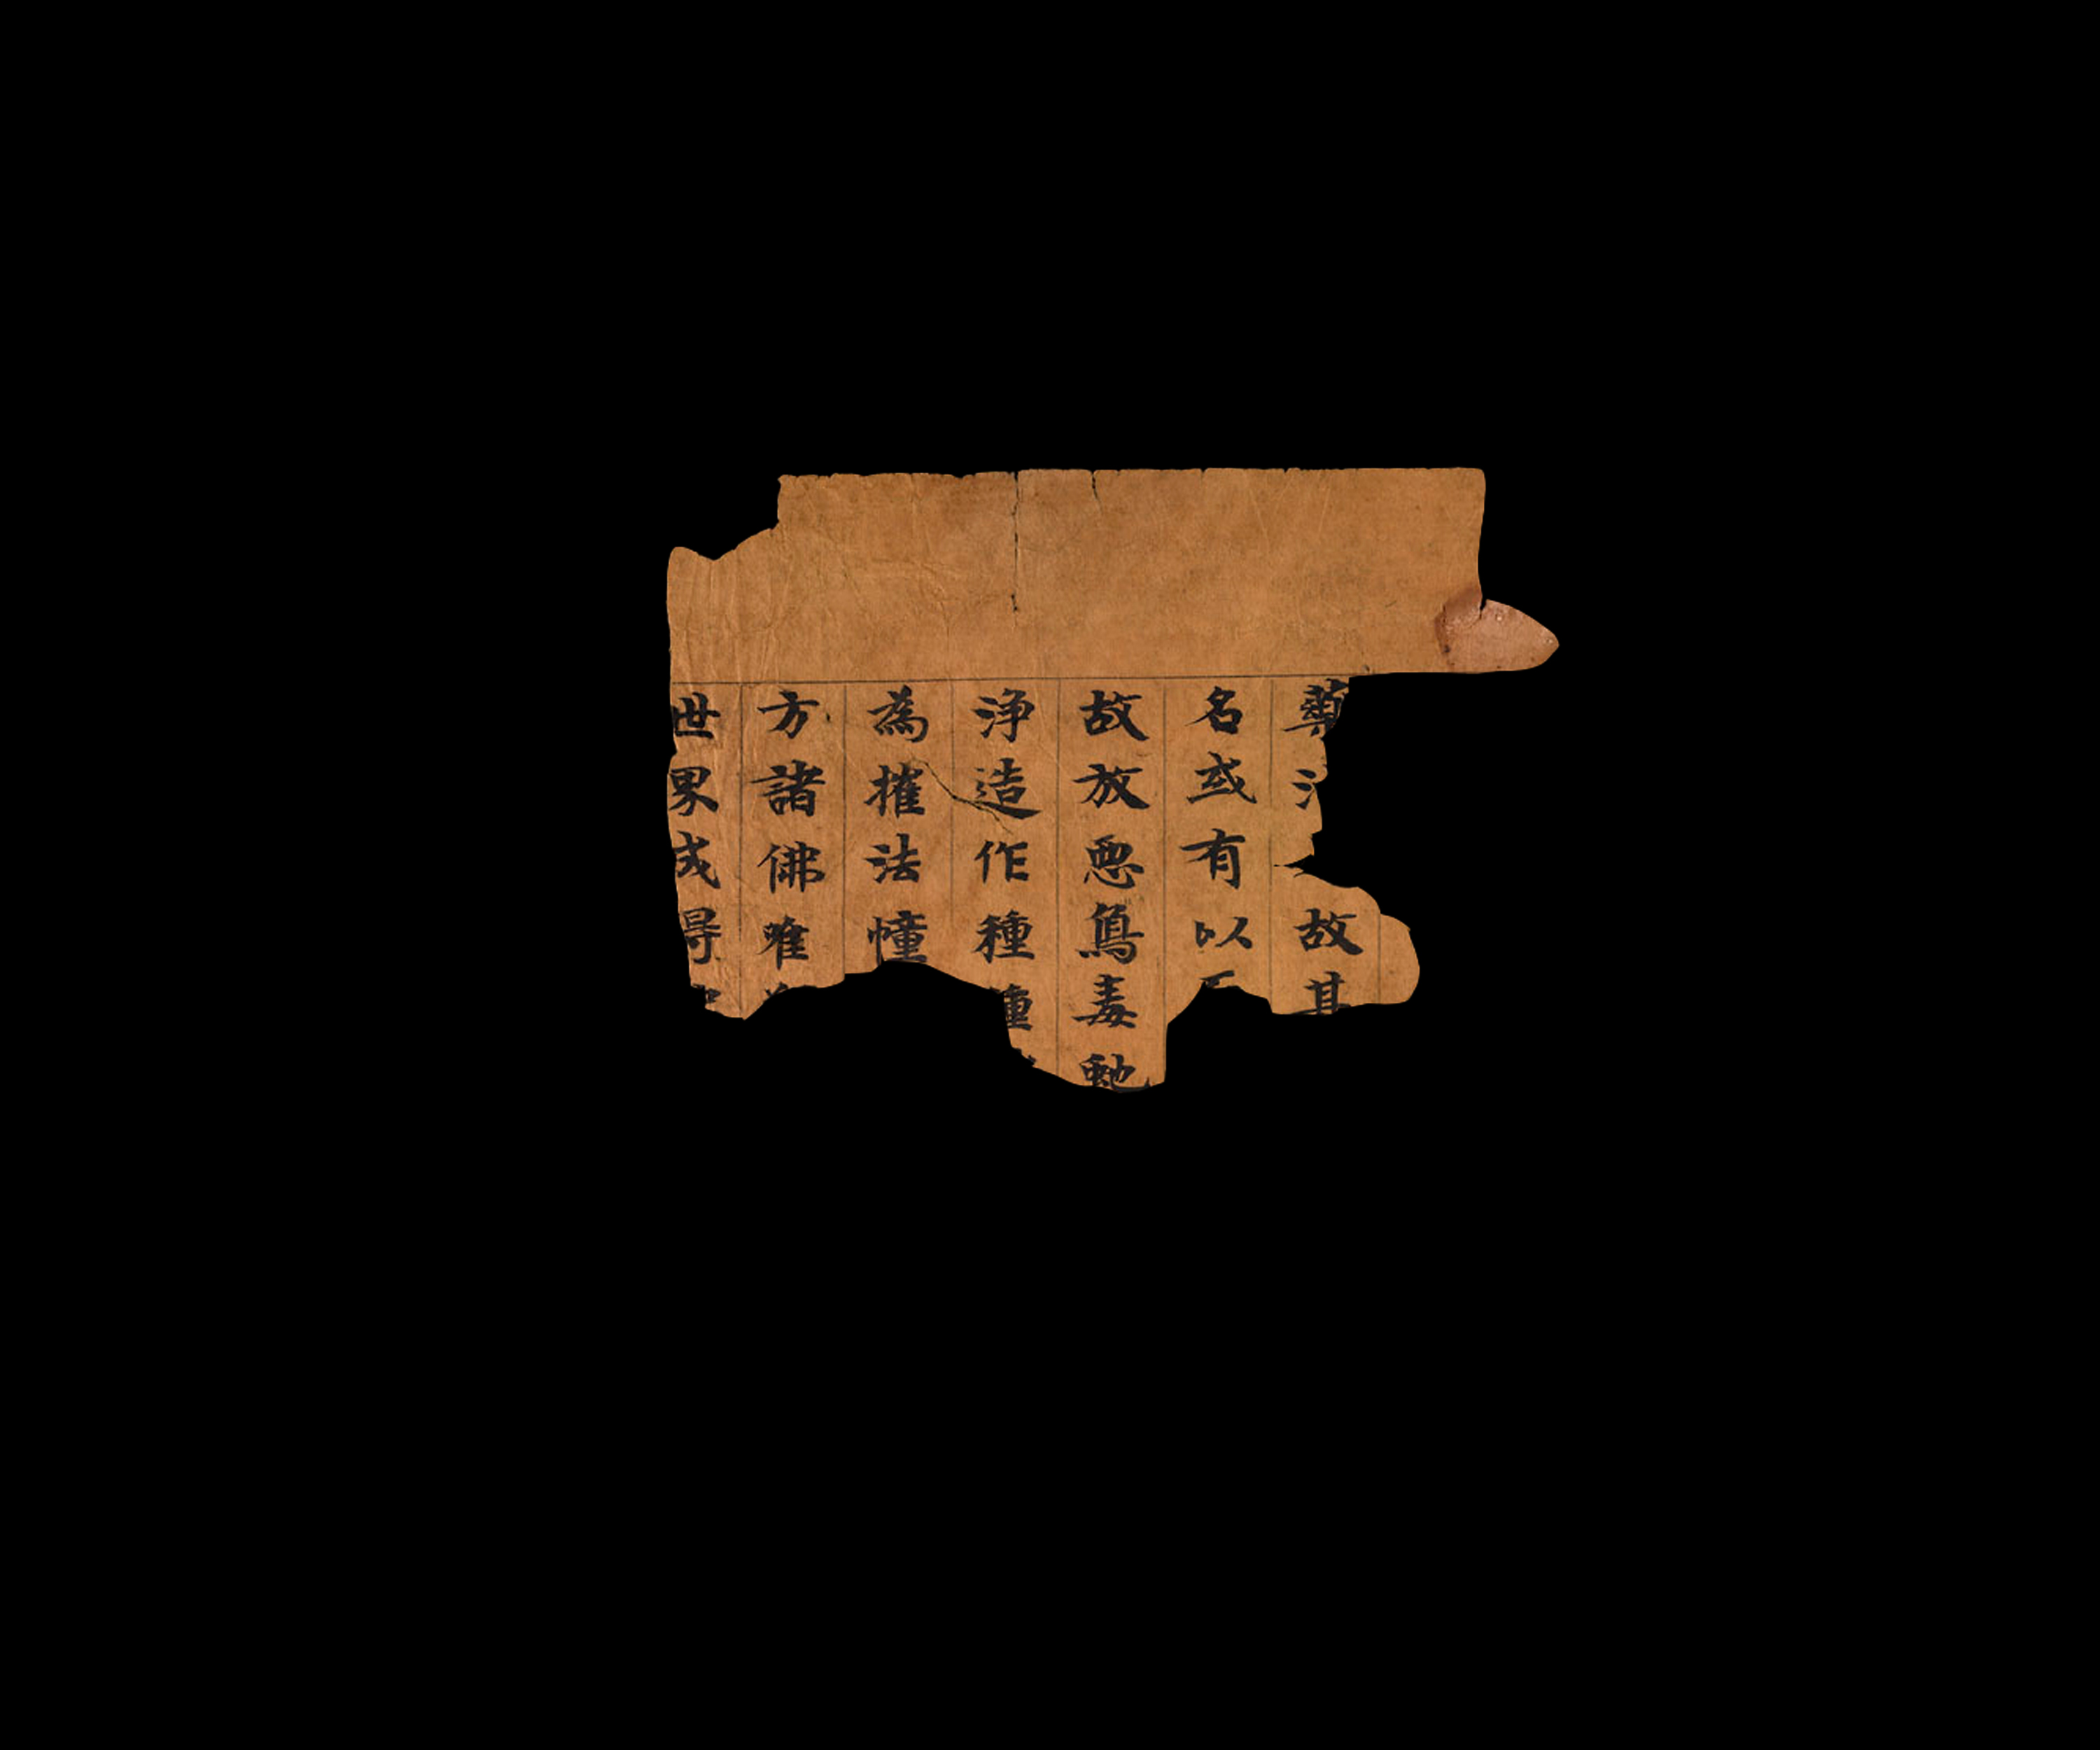 故其
名或有以
故放惡鳥毒虵
浄造作種種
為摧法幢
方諸佛唯
世界成得